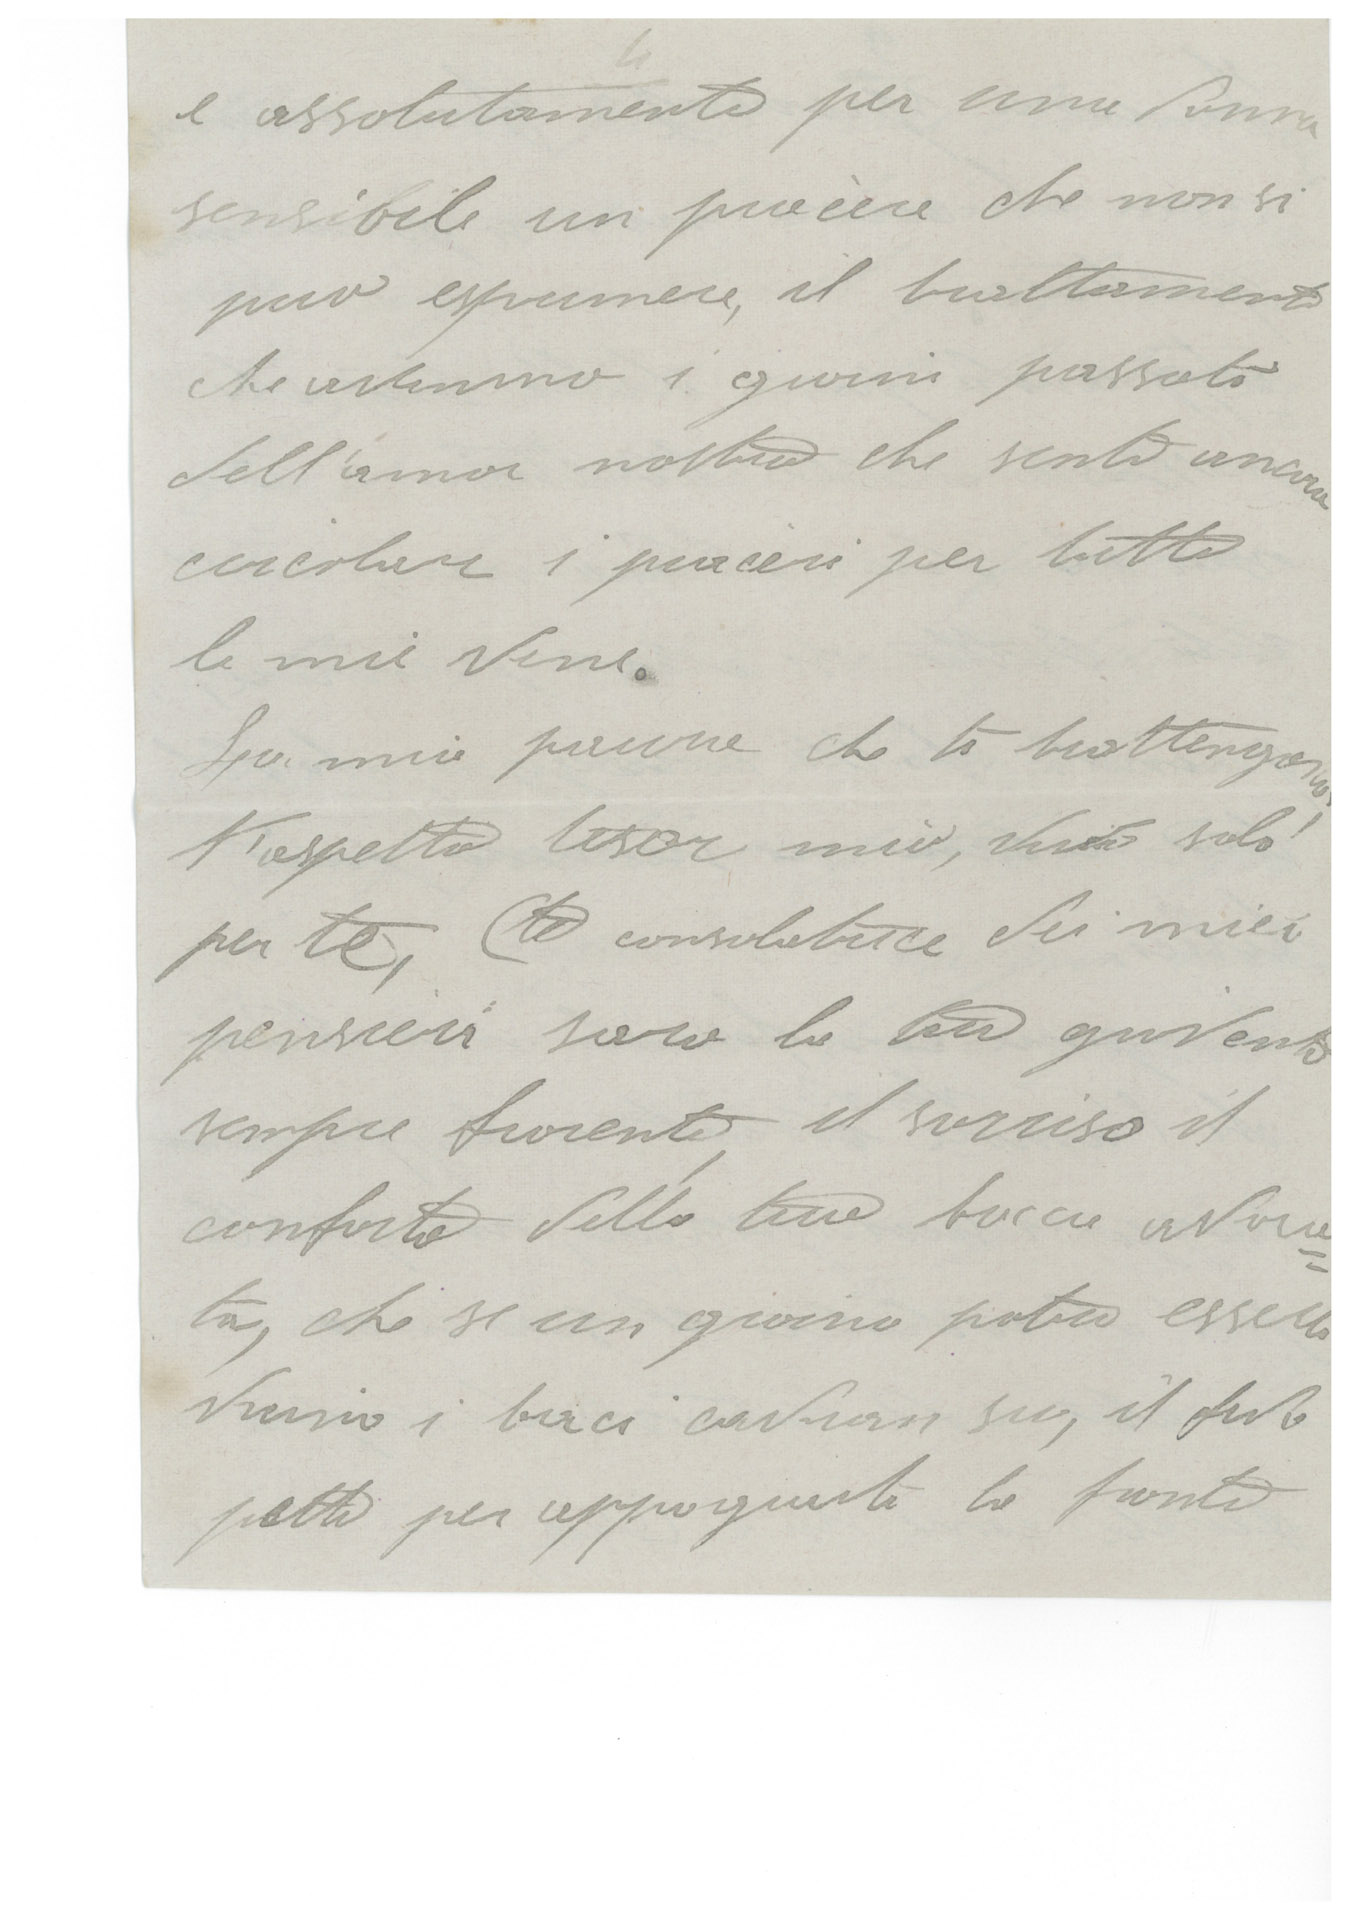 4
e assolutamente per una donna
sensibile un piacere che non si
può esprimere, il trattamento
che avemmo i giorni passati
dell'amor nostro che sento ancora
circolare i piaceri per tutte
le mie vene.
La mia paura che ti trattengono,
t'aspetto tesor mio, vivo solo!
per te, (te consolatrice dei miei
pensieri sarà la tua gioventù
sempre fiorente, il sorriso il
conforto della tua bocca adora=
ta, che se un giorno potrò esserti
vicino i baci cadran su, il tuo
petto per appoggiarti la fronte